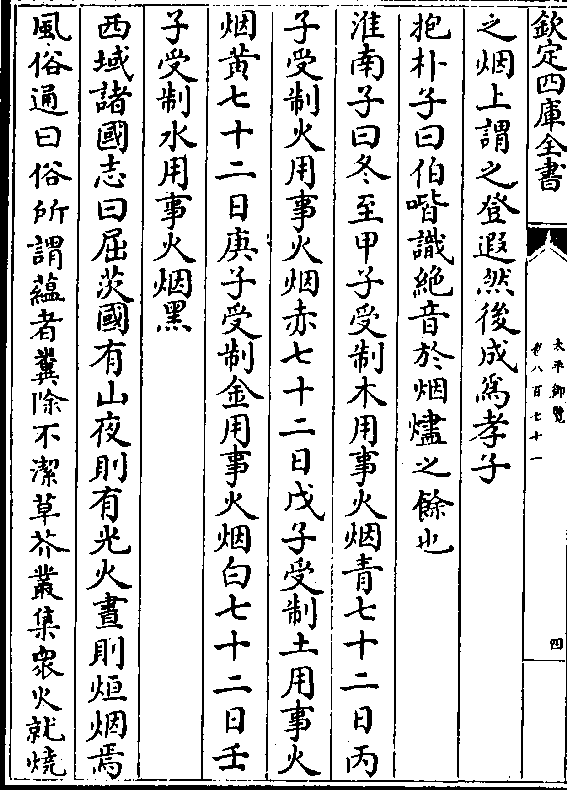 欽定四庫全書
太平御覽
卷八百七十一
四
之烟上謂之登遐然後成爲孝子
抱朴子曰伯喈識絶音於烟燼之餘也
淮南子曰冬至甲子受制木用事火烟青七十二日丙
子受制火用事火烟赤七十二日戊子受制土用事火
烟黄七十二日庚子受制金用事火烟白七十二日壬
子受制水用事火烟黑
西域諸國志曰屈茨國有山夜則有光火晝則烜烟焉
風俗通曰俗所謂藴者糞除不潔草芥叢集衆火就燒